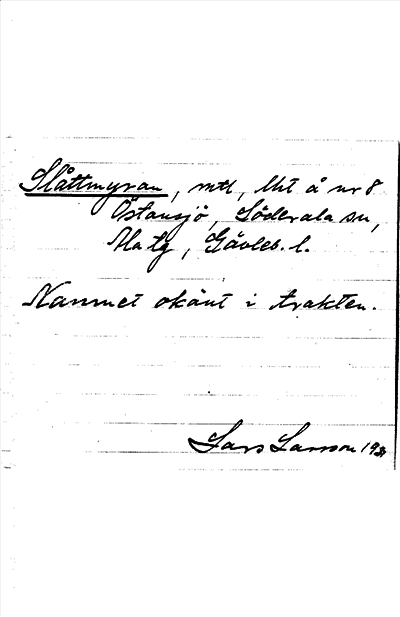 Slåttmyran, mtl, Utl å nr 8
Östansjö, Söderala sn,
Ala tg, Gävleb. l.
Namnet okänt i trakten.
Lars Larsson